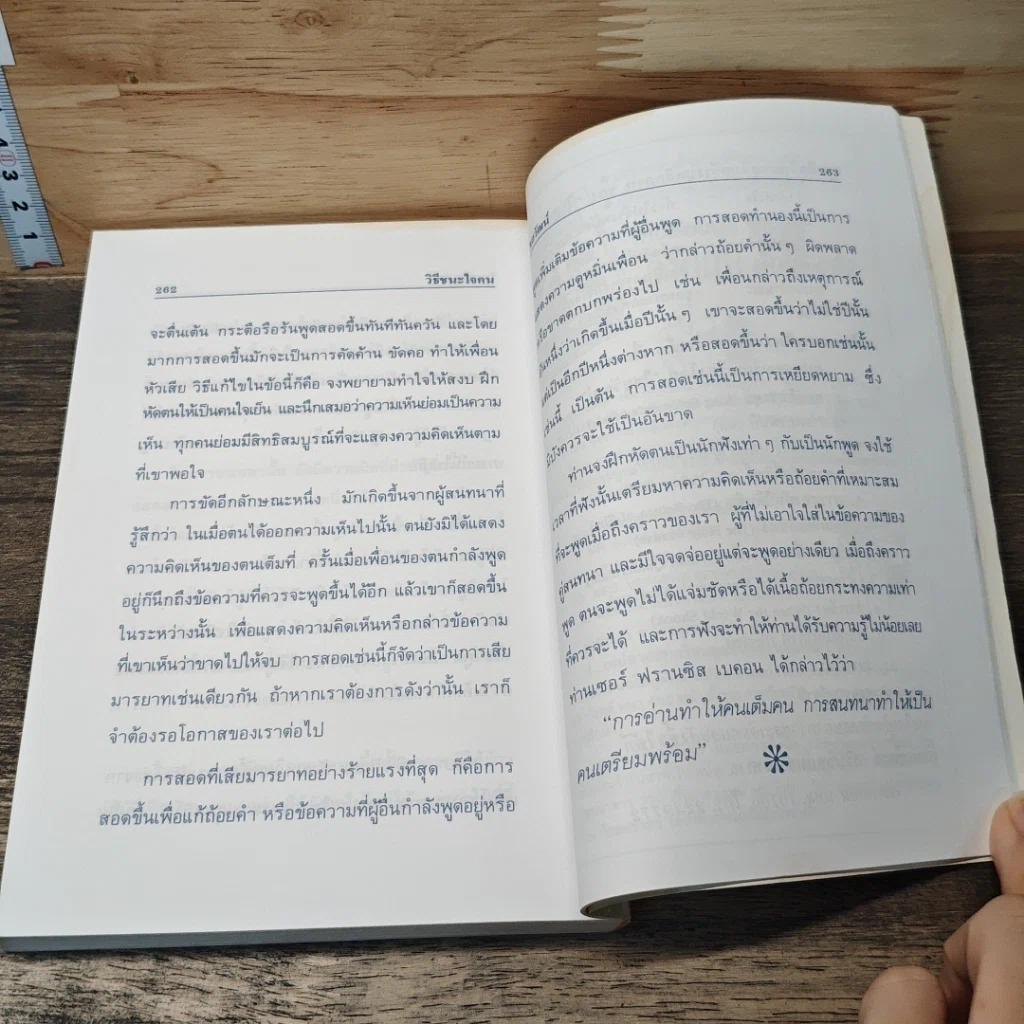 262 วิธีชนะใจคน
จะตื่นเต้น กระตือรือร้นพูดสอดขึ้นทันทีทันควัน และโดย
มากการสอดขึ้นมักจะเป็นการคัดค้าน ขัดคอ ทำให้เพื่อน
หัวเสีย วิธีแก้ไขในข้อนี้ก็คือ จงพยายามทำใจให้สงบ ฝึก
หัดตนให้เป็นคนใจเย็น และนึกเสมอว่าความเห็นย่อมเป็นความ
เห็น ทุกคนย่อมมีสิทธิสมบูรณ์ที่จะแสดงความคิดเห็นตาม
ที่เขาพอใจ
การขัดอีกลักษณะหนึ่ง มักเกิดขึ้นจากผู้สนทนาที่
รู้สึกว่า ในเมื่อตนได้ออกความเห็นไปนั้น ตนยังมิได้แสดง
ความคิดเห็นของตนเต็มที่ ครั้นเมื่อเพื่อนของตนกำลังพูด
อยู่ก็นึกถึงข้อความที่ควรจะพูดขึ้นได้อีก แล้วเขาก็สอดขึ้น
ในระหว่างนั้น เพื่อแสดงความคิดเห็นหรือกล่าวข้อความ
ที่เขาเห็นว่าขาดไปให้จบ การสอดเช่นนี้ก็จัดว่าเป็นการเสีย
มารยาทเช่นเดียวกัน ถ้าหากเราต้องการดังว่านั้น เราก็
จำต้องรอโอกาสของเราต่อไป
การสอดที่เสียมารยาทอย่างร้ายแรงที่สุด ก็คือการ
สอดขึ้นเพื่อแก้ถ้อยคำ หรือข้อความที่ผู้อื่นกำลังพูดอยู่หรือ
263
เพิ่มเติมข้อความที่ผู้อื่นพูด การสอดทำนองนี้เป็นการ
แสดงความดูหมิ่นเพื่อน ว่ากล่าวถ้อยคำนั้น ๆ ผิดพลาด
หรือขาดตกบกพร่องไป เช่น เพื่อนกล่าวถึงเหตุการณ์
อันหนึ่งว่าเกิดขึ้นเมื่อปีนั้น ๆ เขาจะสอดขึ้นว่าไม่ใช่ปีนั้น
แต่เป็นอีกปีหนึ่งต่างหาก หรือสอดขึ้นว่า ใครบอกเช่นนั้น
เช่นนี้ เป็นต้น การสอดเช่นนี้เป็นการเหยียดหยาม ซึ่ง
มิบังควรจะใช้เป็นอันขาด
ท่านจงฝึกหัดตนเป็นนักฟังเท่า ๆ กับเป็นนักพูด จงใช้
เวลาที่ฟังนั้นเตรียมหาความคิดเห็นหรือถ้อยคำที่เหมาะสม
ที่จะพูดเมื่อถึงคราวของเรา ผู้ที่ไม่เอาใจใส่ในข้อความของ
คู่สนทนา และมีใจจดจ่ออยู่แต่จะพูดอย่างเดียว เมื่อถึงคราว
พูด ตนจะพูดไม่ได้แจ่มชัดหรือได้เนื้อถ้อยกระทงความเท่า
ที่ควรจะได้ และการฟังจะทำให้ท่านได้รับความรู้ไม่น้อยเลย
ท่านเซอร์ ฟรานซิส เบคอน ได้กล่าวไว้ว่า
“การอ่านทำให้คนเต็มคน การสนทนาทำให้เป็น
คนเตรียมพร้อม”
4
3
2
1